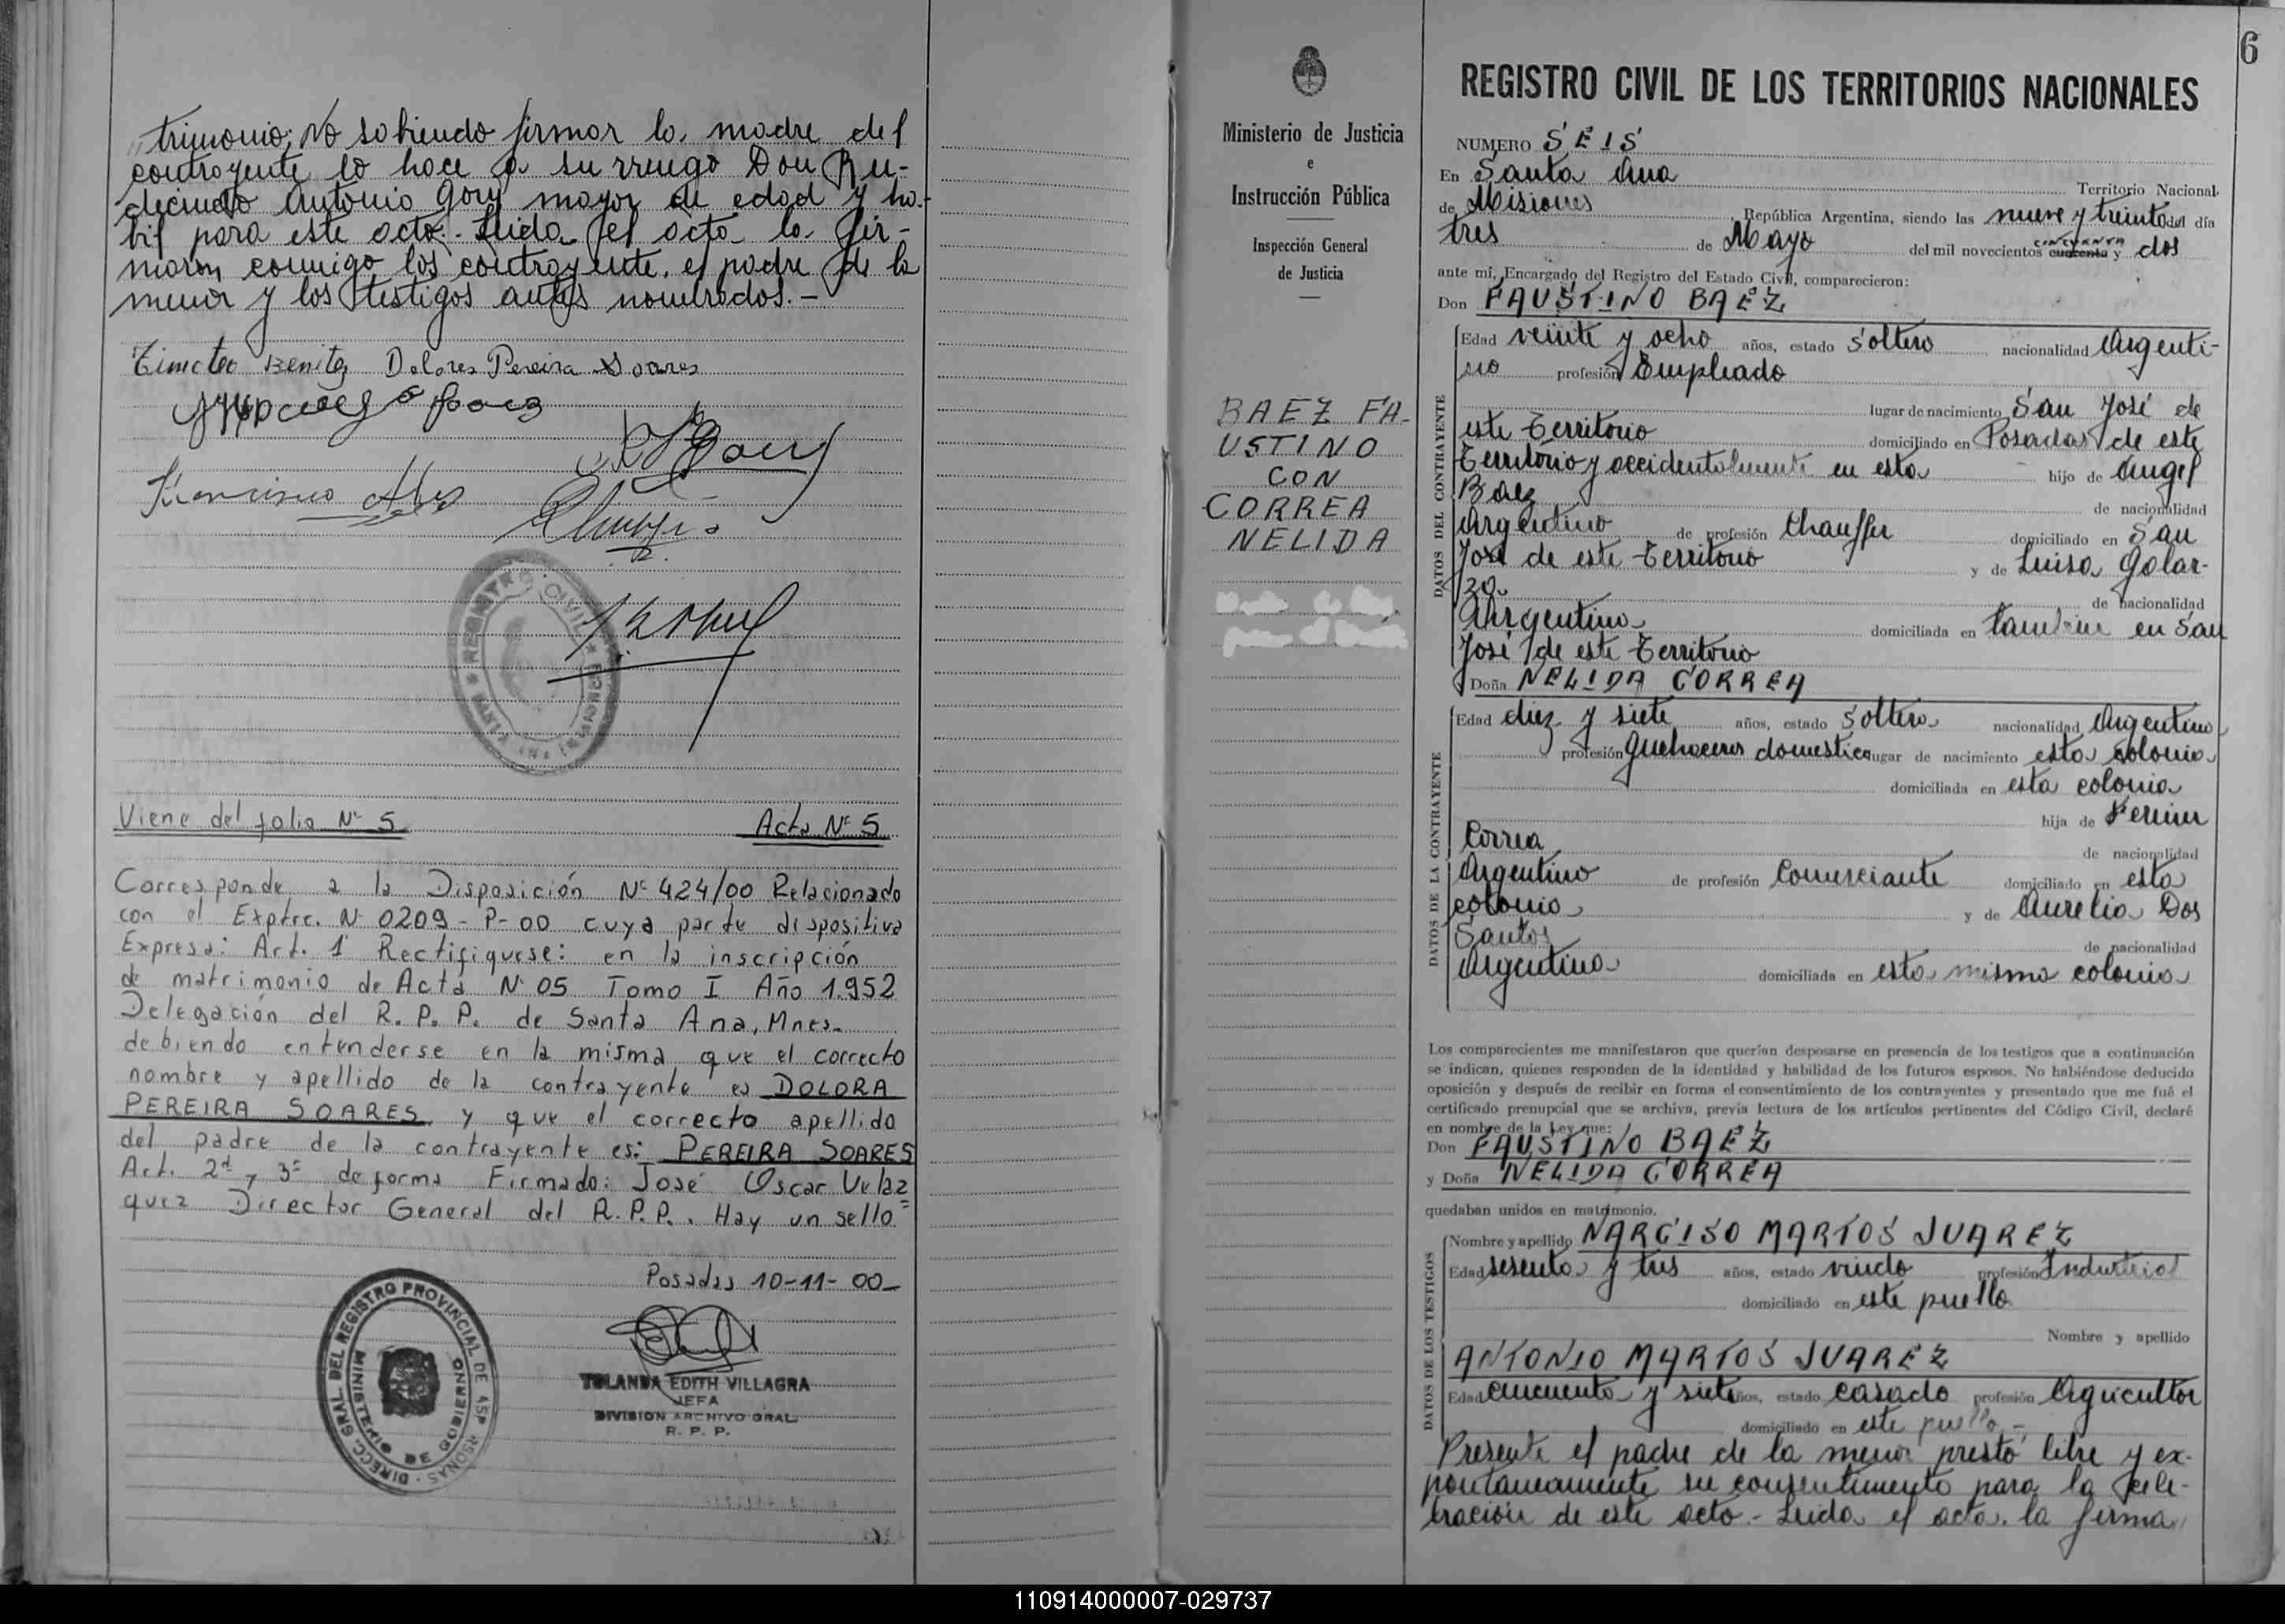 trimonio; No sabiendo firmar la madre del
contrayente lo hace a su rruego Don Ru-
decindo Antonio Gory mayor de edad y ha-
bil para este acto. Leida el acta la fir-
maron conmigo los contrayente, el padre de la
menor y los testigos antes nombrados.-
Timoteo Benitez Dolores Pereira Soares
Francisco
REGISTRO CIVIL
SANTA ANA (MISIONES)
Viene del folio Nº 5 Acta Nº 5
Corresponde a la Disposición Nº 424/00 Relacionado
con el Exptte. Nº 0209-P-00 cuya parte dispositiva
Expresa: Art. 1º Rectifiquese: en la inscripción
de matrimonio de Acta Nº 05 Tomo I Año 1.952
Delegación del R. P. P. de Santa Ana, Mnes.
debiendo entenderse en la misma que el correcto
nombre y apellido de la contrayente es DOLORA
PEREIRA SOARES y que el correcto apellido
del padre de la contrayente es: PEREIRA SOARES
Art. 2º y 3º de forma Firmado: José Oscar Velaz
quez Director General del R.P.P. Hay un sello=
Posadas 10-11-00-
DIRECC. GRAL. DEL REGISTRO PROVINCIAL DE
MINISTERIO DE GOBIERNO
YOLANDA EDITH VILLAGRA
JEFA
DIVISION ARCHIVO GRAL.
R. P. P.
6
Ministerio de Justicia
e
Instrucción Pública
Inspección General
de Justicia
BAEZ FA-
USTINO
CON
CORREA
NELIDA
REGISTRO CIVIL DE LOS TERRITORIOS NACIONALES
NUMERO SEIS
En Santa Ana Territorio Nacional
de Misiones República Argentina, siendo las nueve y treinta del día
tres de Mayo del mil novecientos cuarenta CINCUENTA y dos
ante mí, Encargado del Registro del Estado Civil, comparecieron:
Don FAUSTINO BAEZ
DATOS DEL CONTRAYENTE
Edad veinte y ocho años, estado soltero nacionalidad Argenti-
no profesión Empleado
lugar de nacimiento San José de
este Territorio domiciliado en Posadas de este
Territorio y accidentalmente en esta hijo de Angel
Baez de nacionalidad
Argentino de profesión Chauffer domiciliado en San
José de este Territorio y de Luisa Golar-
za de nacionalidad
Argentina domiciliada en tambien en San
José de este Territorio
Doña NELIDA CORREA
DATOS DE LA CONTRAYENTE
Edad diez y siete años, estado soltera nacionalidad Argentina
profesión Quehaceres domestico lugar de nacimiento esta colonia
domiciliada en esta colonia
hija de Fermin
Correa de nacionalidad
Argentino de profesión Comerciante domiciliado en esta
colonia y de Aurelia Dos
Santos de nacionalidad
Argentina domiciliada en esta misma colonia
Los comparecientes me manifestaron que querían desposarse en presencia de los testigos que a continuación
se indican, quienes responden de la identidad y habilidad de los futuros esposos. No habiéndose deducido
oposición y después de recibir en forma el consentimiento de los contrayentes y presentado que me fué el
certificado prenupcial que se archiva, previa lectura de los artículos pertinentes del Código Civil, declaré
en nombre de la Ley que:
Don FAUSTINO BAEZ
y Doña NELIDA CORREA
quedaban unidos en matrimonio.
DATOS DE LOS TESTIGOS
Nombre y apellido NARCISO MARTOS JUAREZ
Edad sesenta y tres años, estado viudo profesión Industrial
domiciliado en este pueblo
Nombre y apellido
ANTONIO MARTOS JUAREZ
Edad cincuenta y siete años, estado casado profesión Agricultor
domiciliado en este pueblo.-
Presente el padre de la menor prestó libre y ex-
pontaneamente su consentimiento para la cele-
bración de este acto.- Leida el acta. la firma
110914000007-029737